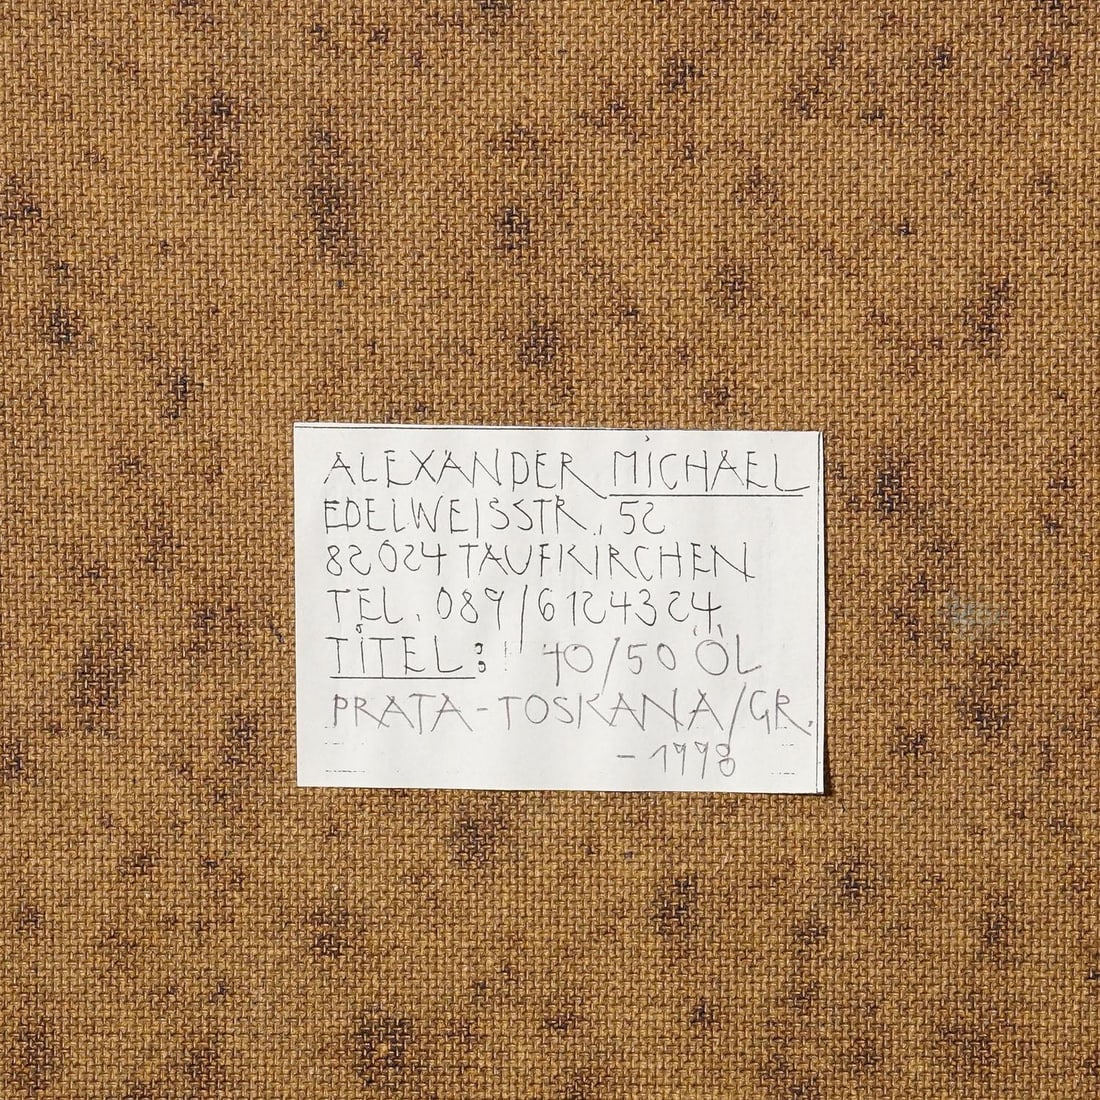 ALEXANDER MICHAEL
EDELWEISSTR. 52
82024 TAUFKIRCHEN
TEL. 089/6124324
TITEL: 40/50 ÖL
PRATA-TOSKANA/GR.
- 1998